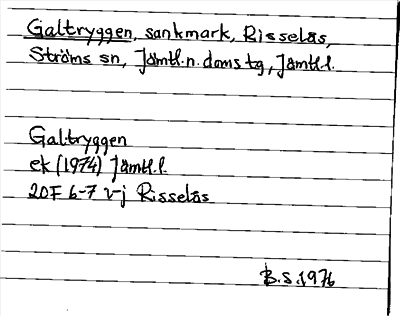 Galtryggen, sankmark, Risselås,
Ströms sn, Jämtl.n.doms tg, Jämtl.l.
Galtryggen
ek (1974) Jämtl.l.
20F 6-7 i-j Risselås
B.S.1976